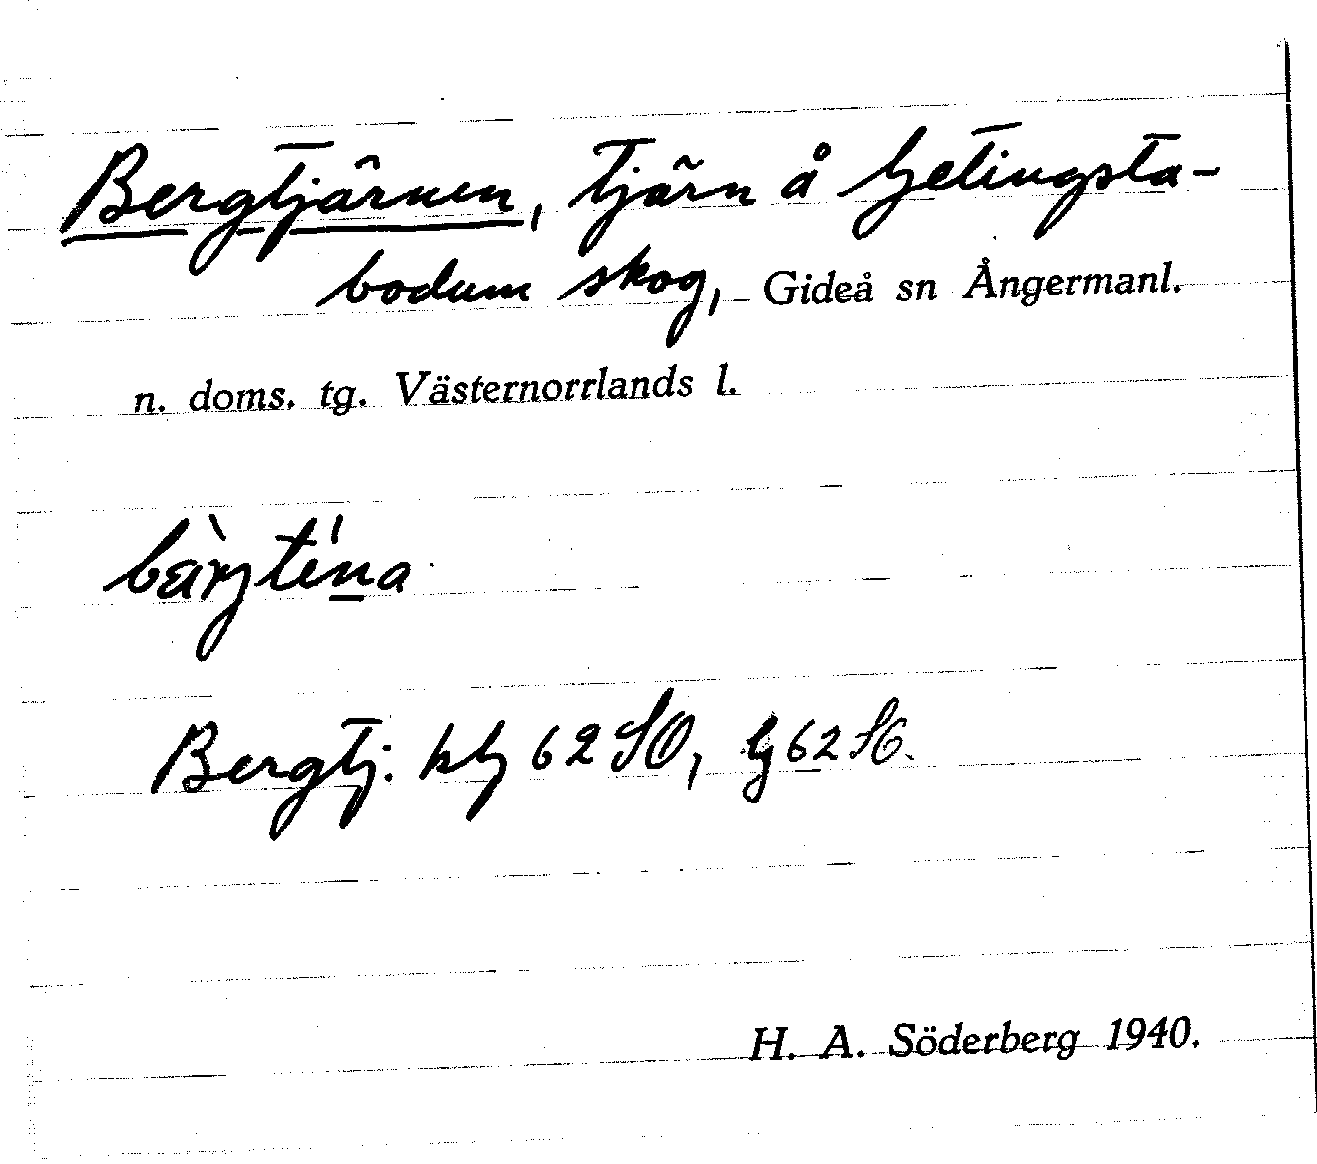 Bergtjärnen, tjärn å Getingsta-
bodum skog, Gideå sn Ångermanl.
n. doms. tg. Västernorrlands l.
Bergtj. hbl 62 SO, G 62 SO.
H. A. Söderberg 1940.